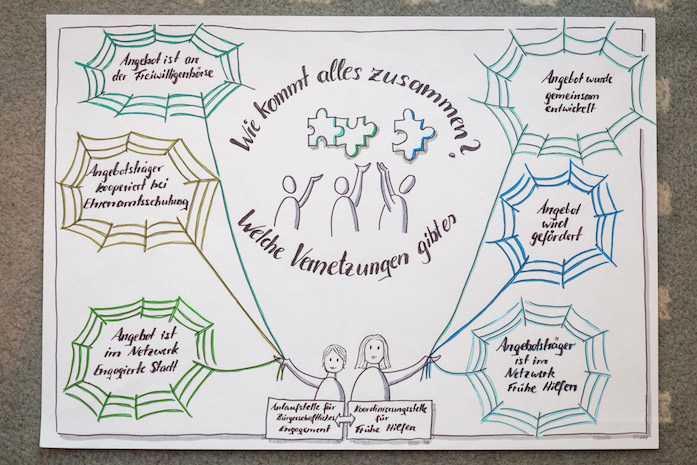 Wie kommt alles zusammen?
Welche Vernetzungen gibt es
Angebot ist an
der Freiwilligenbörse
Angebotsträger
kooperiert bei
Ehrenamtsschulung
Angebot ist
im Netzwerk
Engagierte Stadt
Angebot wurde
gemeinsam
entwickelt
Angebot
wird
gefördert
Angebotsträger
ist im
Netzwerk
Frühe Hilfen
Anlaufstelle für
Bürgerschaftliches
Engagement
Koordinierungsstelle
für
Frühe Hilfen